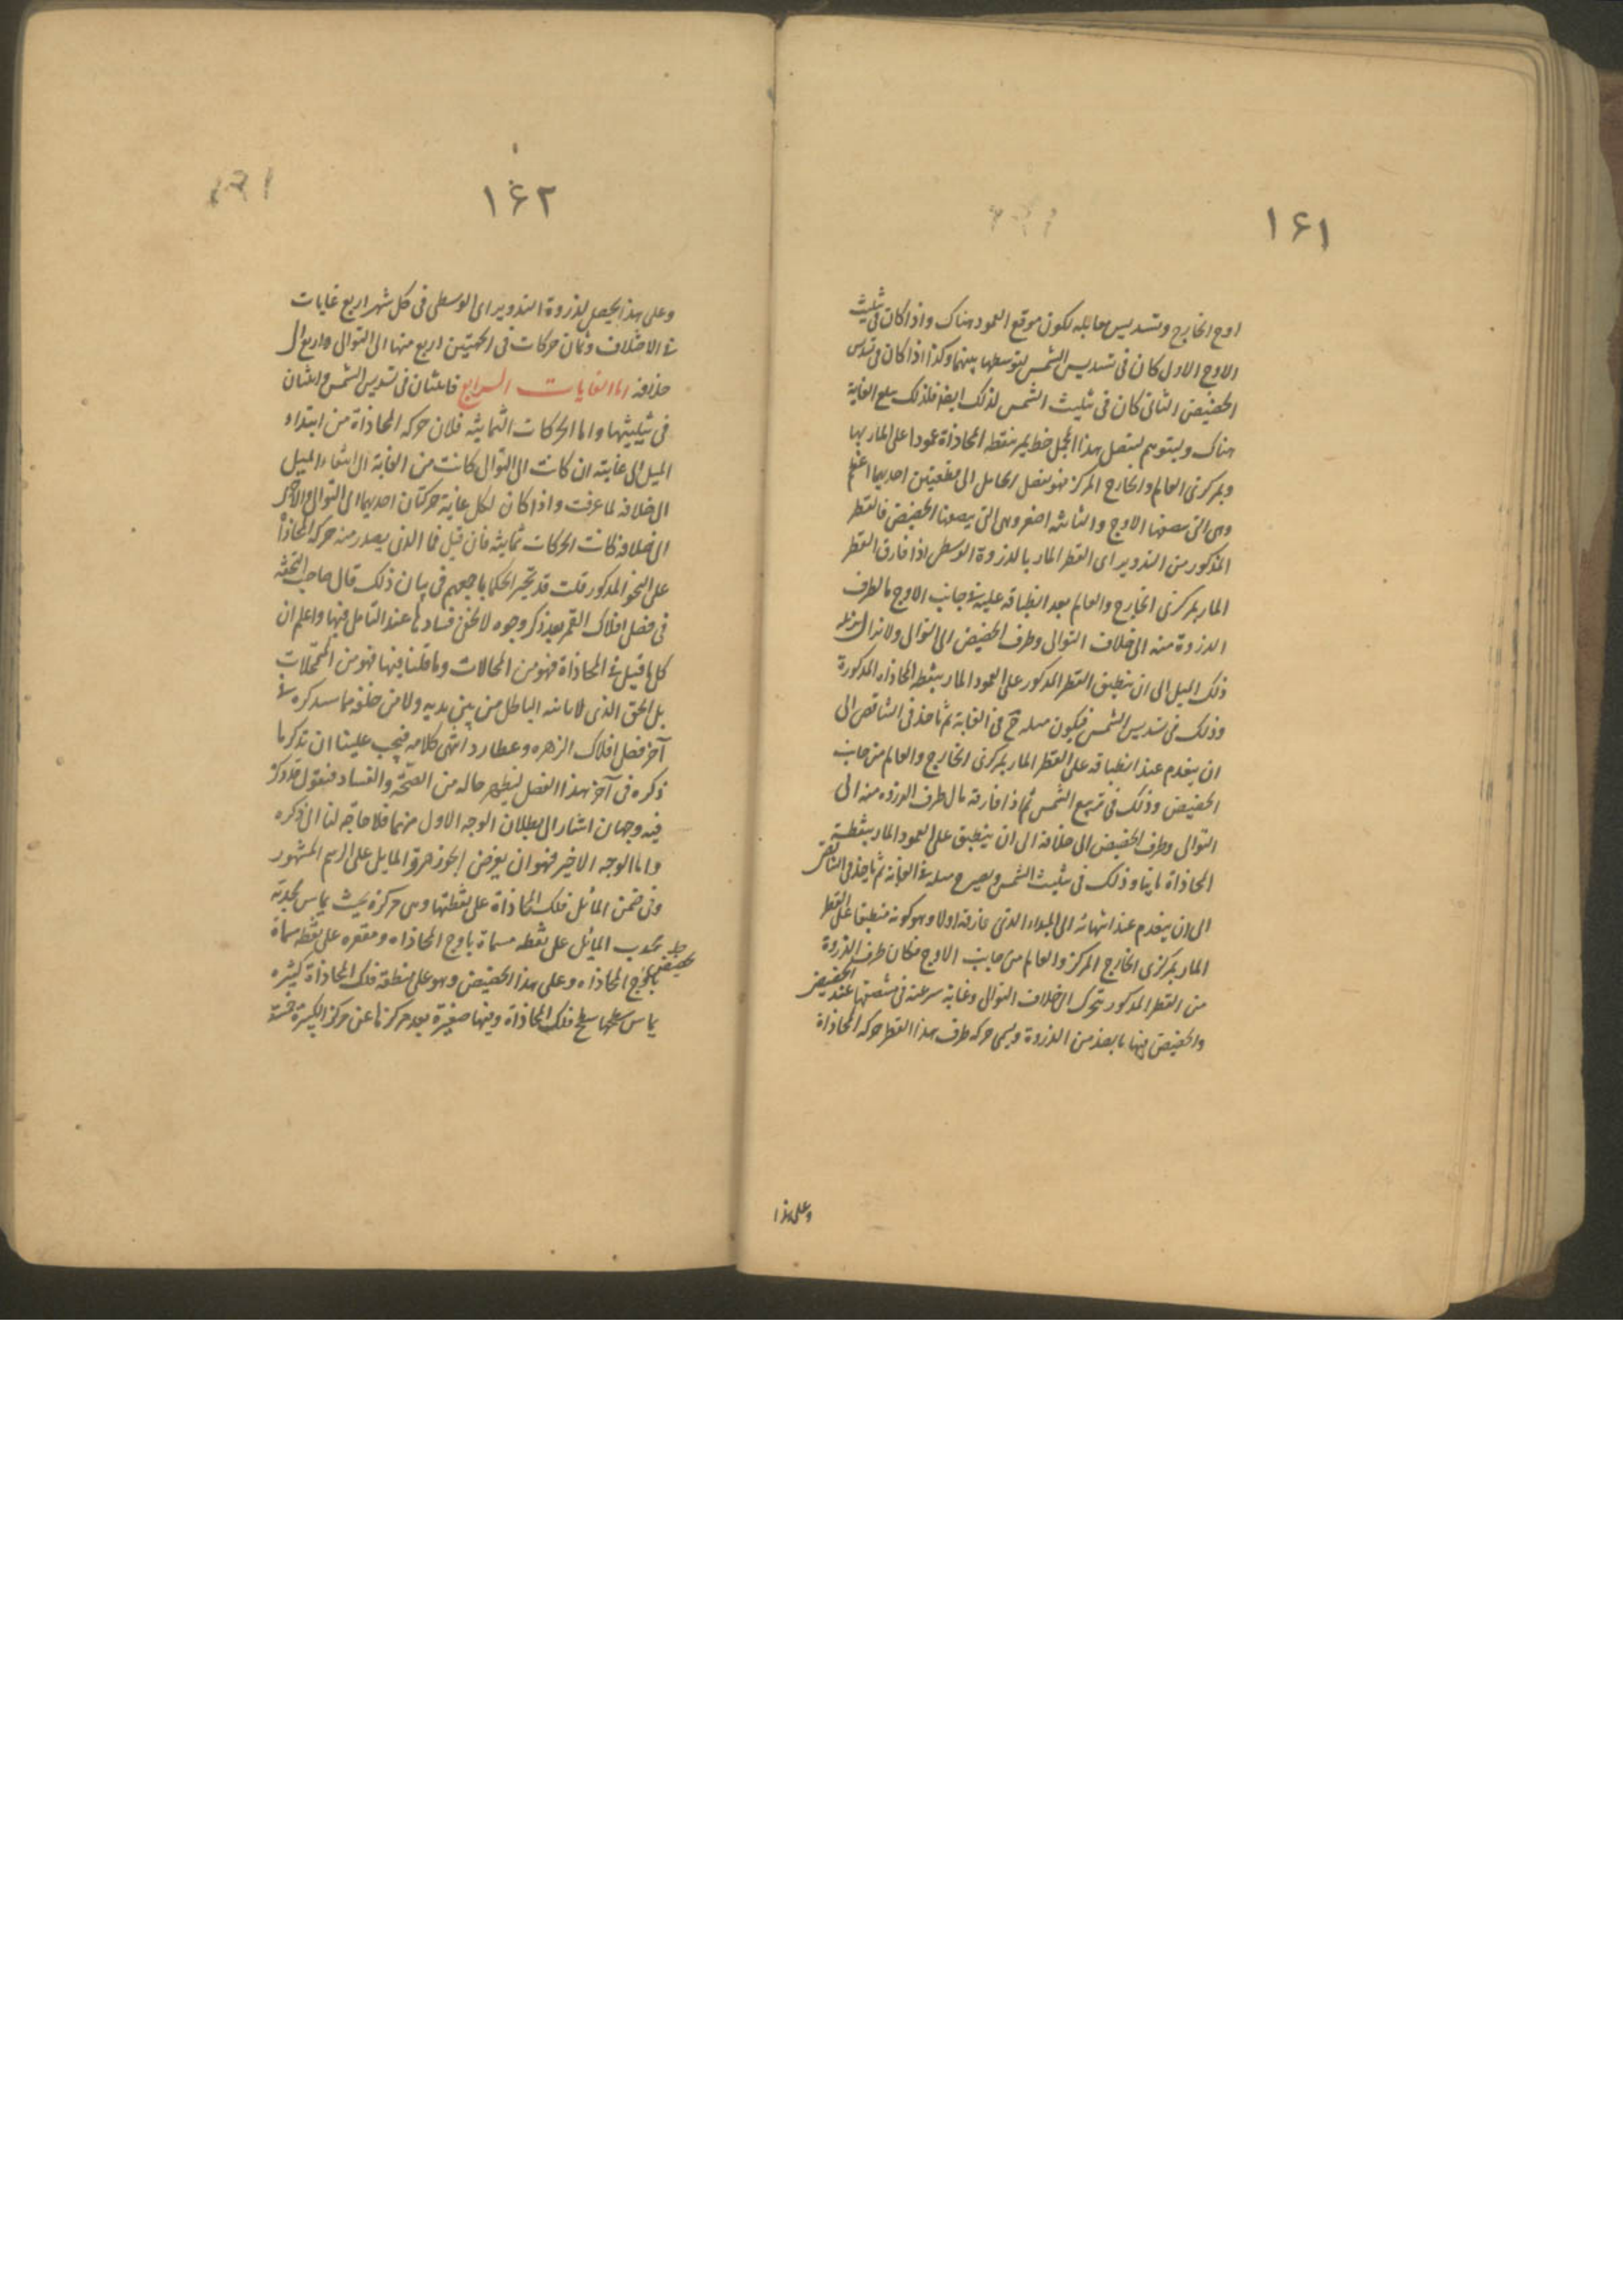 ۱۶۱
اوج الخارج وتسديس مقابله لكون موقع العمود هناك واذا كان فى تثليث
الاوج الاول كان فى تسديس الشمس لتوسطها بينهما وكذا اذا كان فى تسديس
الحضيض الثانى كان فى تثليث الشمس لذلك ايضا فلذلك يبلغ الغاية
هناك وليتوهم لتفصيل هذا المجمل خط يمر بنقطة المحاذاة عمودا على المار بها
وبمركزى العالم والخارج المركز فهو يفصل الحامل الى قطعتين احديهما اعظم
وهى التى ينصفها الاوج والثانية اصغر وهى التى ينصفها الحضيض فالقطر
المذكور من التدوير اى القطر المار بالذروة الوسطى اذا فارق القطر
المار بمركزى الخارج والعالم بعد انطباقه عليه فى جانب الاوج مال طرف
الذروة منه الى خلاف التوالى وطرف الحضيض الى التوالى ولا يزال يزيد
ذلك الميل الى ان ينطبق القطر المذكور على العمود المار بنقطة المحاذاه المذكورة
وذلك فى تسديس الشمس فيكون ميله ح فى الغاية ثم ياخذ فى التناقص الى
ان ينعدم عند انطباقه على القطر المار بمركزى الخارج والعالم من جانب
الحضيض وذلك فى تربيع الشمس ثم اذا فارقه مال طرف الذروه منه الى
التوالى وطرف الحضيض الى خلافه الى ان ينطبق على العمود المار بنقطة
المحاذاة ثانيا وذلك فى تثليث الشمس ويصير ح ميله فى الغاية ثم ياخذ فى التناقص
الى ان ينعدم عند انتهائه الى المبداء الذى فارقه اولا وهو كونه منطبقا على القطر
المار بمركزى الخارج المركز والعالم من جانب الاوج فكان طرف الذروة
من القطر المذكور يتحرك الى خلاف التوالى وغاية سرعته فى منتصفها عند الحضيض
والحضيض فيها بالضد من الذروة ويسمى حركه طرف هذا القطر حركه المحاذاة
وعلى هذا
۱۶۲
وعلى هذا يحصل لذروة التدوير اى الوسطى فى كل شهر اربع غايات
فى الاختلاف وثمان حركات فى الجهتين اربع منها الى التوالى واربع الى
خلافه اما الغايات الرابع فاثنتان فى تسديس الشمس واثنتان
فى تثليثها واما الحركات الثمانية فلان حركه المحاذاة من ابتداء
الميل الى غايته ان كانت الى التوالى كانت من الغاية الى انتهاء الميل
الى خلافه لما عرفت واذا كان لكل غاية حركتان احديهما الى التوالى والاخرى
الى خلافه كانت الحركات ثمانية فان قيل فما الذى يصدر منه حركه المحاذاة
على النحو المذكور قلت قد تحير الحكما باجمعهم فى بيان ذلك قال صاحب التحفة
فى فصل افلاك القمر بعد ذكر وجوه لا يخفى فسادها عند التامل فيها واعلم ان
كل ما قيل فى المحاذاة فهو من المحالات وما قلنا فيها فهو من التمحلات
بل الحق الذى لا ياتيه الباطل من بين يديه ولا من خلفه ما سنذكره فى
آخر فصل افلاك الزهره وعطارد انتهى كلامه فيجب علينا ان نذكر ما
ذكره فى آخر هذا الفصل ليظهر حاله من الصحة والفساد فنقول قد ذكر
فيه وجهان اشار الى بطلان الوجه الاول منهما فلا حاجة لنا الى ذكره
واما الوجه الاخير فهو ان يفرض الجوزهر والمايل على الرسم المشهور
وفى ضمن المائل فلك المحاذاة على نقطتها وهى مركزه بحيث يماس محدبه
محدب المائل على نقطه مسماة باوج المحاذاه ومقعره على نقطه مسماة
بحضيض المحاذاه وعلى هذا الحضيض وهو على منطقة فلك المحاذاة كبيره
يماس سطحها سطح فلك المحاذاة وفيها صغيرة بعد مركزها عن مركز الكبيرة خمسة